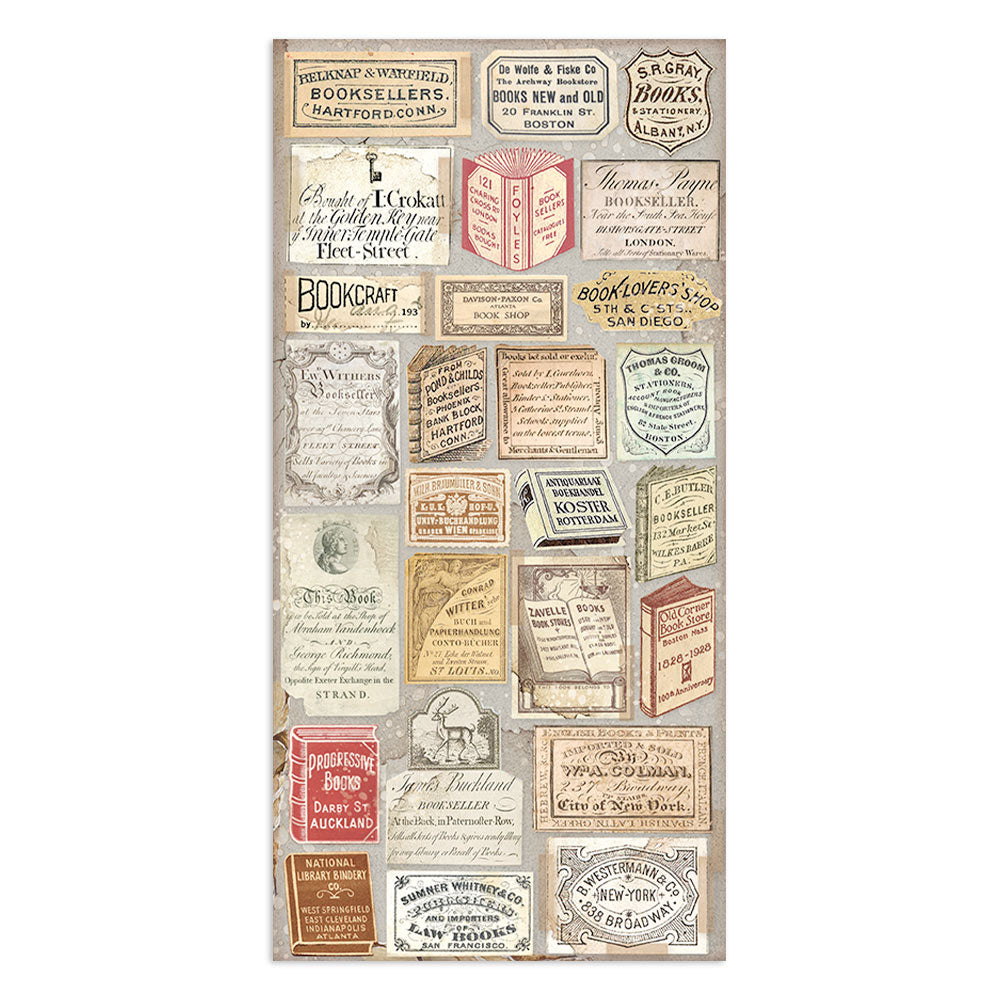 BELKNAP & WARFIELD,
BOOKSELLERS.
HARTFORD.CONN.
De Wolfe & Fiske Co
The Archway Bookstore
BOOKS NEW and OLD
20 FRANKLIN ST.
BOSTON
S.R.GRAY,
BOOKS,
& STATIONERY,
ALBANY, N.Y.
Bought of I:Crokatt
at the Golden Key near
ye Inner Temple-Gate
Fleet-Street.
121
CHARING
CROSS RD
LONDON
BOOKS
BOUGHT
FOYLES
BOOK
SELLERS
CATALOGUES
FREE
Thomas Payne
BOOKSELLER.
Near the South Sea House
BISHOPSGATE-STREET
LONDON.
Sells all Sorts of Stationary Wares.
BOOKCRAFT
by. 193
DAVISON-PAXON Co.
ATLANTA
BOOK SHOP
BOOK-LOVERS'SHOP
5TH & C STS.,
SAN DIEGO.
Ew. WITHERS
Bookseller
at the Seven Stars
over agst Chancery Lane
FLEET STREET
Sells Variety of Books in
all faculties & Sciences
FROM
POND & CHILDS
Booksellers.
PHOENIX
BANK BLOCK,
HARTFORD
CONN.
Books let, sold or exch
Sold by I. Cawthorn,
Bookseller, Publisher,
Binder & Stationer,
Catherine St. Strand.
Schools supplied
on the lowest terms,
Merchants & Gentlemen
Great allowance to
THOMAS GROOM
& CO.
STATIONERS,
ACCOUNT BOOK MANUFACTURERS
& IMPORTERS OF
ENGLISH & FRENCH STATIONERY
82 State Street.
BOSTON.
WILH. BRAUMÜLLER & SOHN
K.U.K. HOF-U.
UNIV.-BUCHHANDLUNG
GRABEN WIEN SPARKASSE
ANTIQUARIAAT
BOEKHANDEL
KOSTER
ROTTERDAM
C.E.BUTLER
BOOKSELLER
132 Market St
WILKES BARRE
PA.
This Book
to be Sold at the Shop of
Abraham Vandenhoeck
AND
George Richmond,
the Sign of Virgill's Head,
Opposite Exeter Exchange in the
STRAND.
CONRAD
WITTER'
BUCH und
PAPIERHANDLUNG
CONTO-BÜCHER
No 27, Ecke der Walnut
und Zweiten Strasse,
ST LOUIS, MO.
ZAVELLE
BOOK STORES
BOOKS
THIS BOOK BELONGS TO
Old Corner
Book Store
Boston Mass
1828-1928
100th Anniversary
PROGRESSIVE
BOOKS
DARBY ST
AUCKLAND
James Buckland
BOOKSELLER
At the Buck, in Paternoster-Row,
Sells all Sorts of Books & gives ready Money
for any Library or Parcell of Books.
ENGLISH BOOKS & PRINTS,
HEBREW, &c
IMPORTED & SOLD
By
WM A. COLMAN,
237 Broadway,
UP STAIRS,
City of New York.
SPANISH, LATIN, GREEK
NATIONAL
LIBRARY BINDERY
CO.
WEST SPRINGFIELD
EAST CLEVELAND
INDIANAPOLIS
ATLANTA
SUMNER WHITNEY & CO.
PUBLISHERS
AND IMPORTERS
OF
LAW BOOKS
SAN FRANCISCO.
B. WESTERMANN & CO.
NEW-YORK
838 BROADWAY